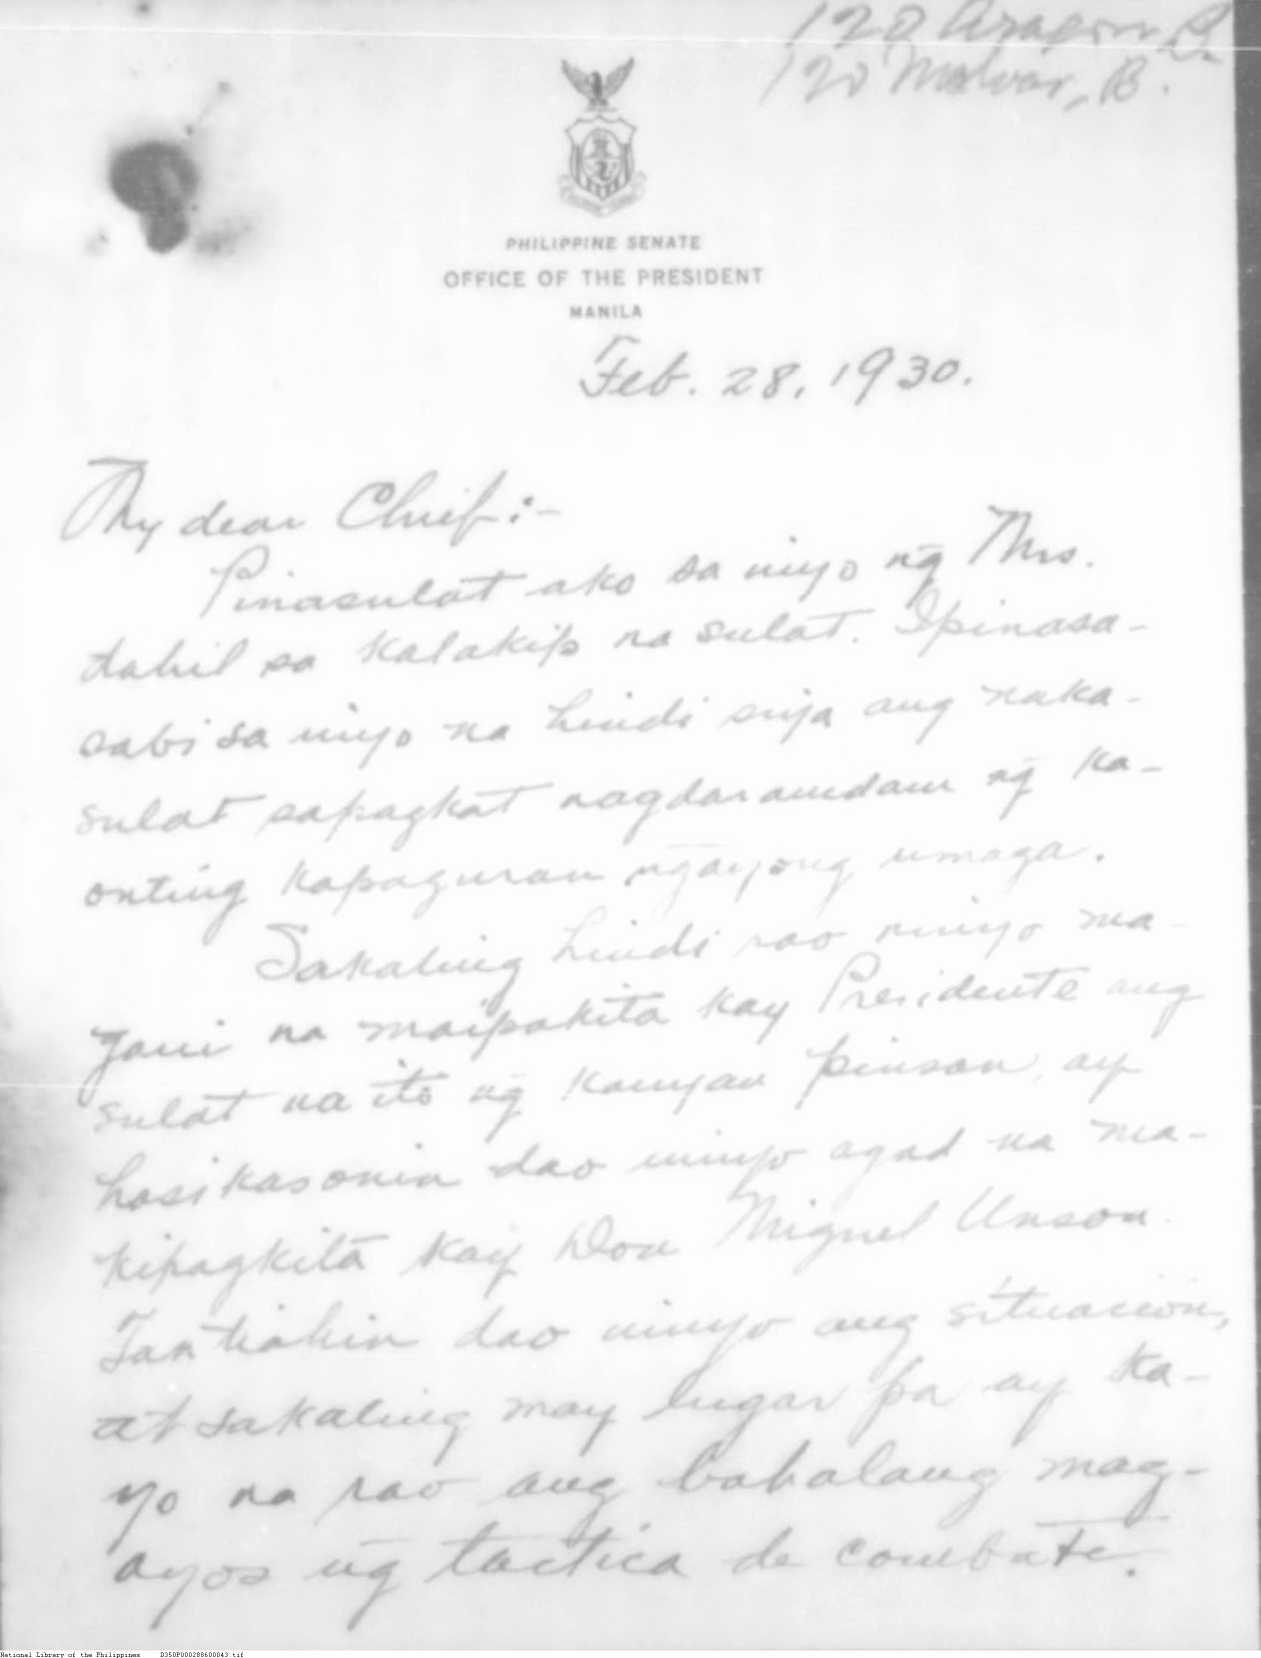 120 Aragon B.
120 Malvar, B.
PHILIPPINE SENATE
OFFICE OF THE PRESIDENT
MANILA
Feb. 28, 1930.
My dear Chief:-
Pinasulat ako sa inyo ng̃ Mrs.
dahil sa kalakip na sulat. Ipinasa-
sabi sa inyo na hindi siya ang naka-
sulat sapagkat nagdaramdam ng̃ ka-
onting kapaguran ng̃ayong umaga.
Sakaling hindi rao ninyo ma-
gawi na maipakita kay Presidente ang
sulat na ito ng̃ kanyan pinsan, ay
hasikasonin dao ninyo agad na ma-
kipagkita kay Don Miguel Unson.
Tantiahin dao ninyo ang situacion,
at sakaling may lugar pa ay ka-
yo na rao ang bahalang mag-
ayos ng̃ tactica de combate.
National Library of the Philippines D350P000288600043.tif